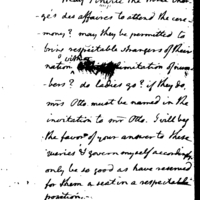 may they the
ge's des affaires to attend the cere-
mony? may they be permitted to
bring respectable strangers of their
nation without limitation of num-
bers? do ladies go? if they do,
mrs Otto must be named in the
invitation to mr Otto. I will beg
the favor of your answer to these
queries & govern myself accordingly
only be so good as have reserved
for them a seat in a respectable
position.